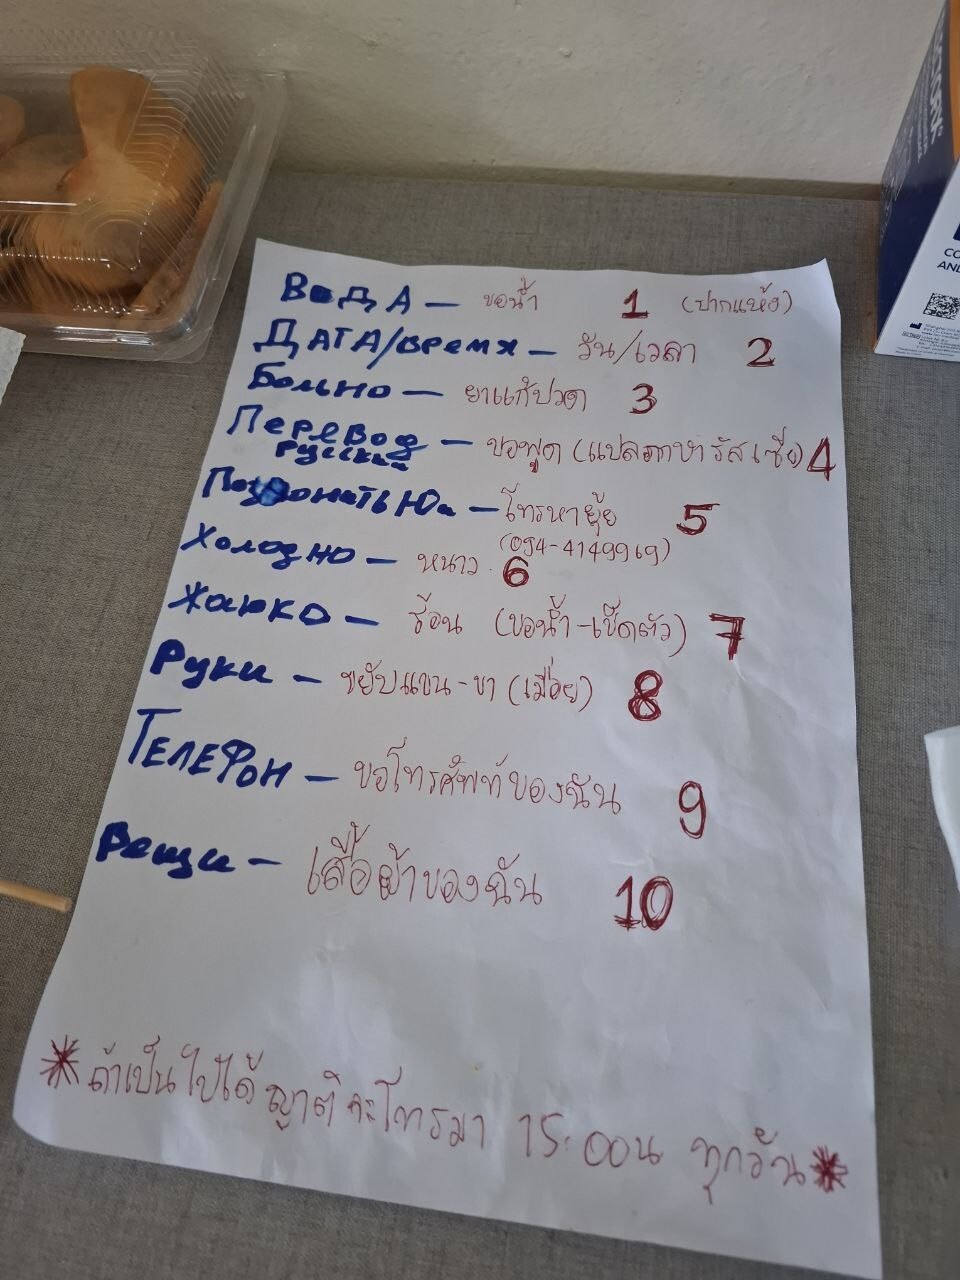 ВОДА — ขอน้ำ 1 (ปากแห้ง)
ДАТА/время — วัน/เวลา 2
Больно — ยาแก้ปวด 3
Перевод — ขอพูด (แปลภาษารัสเซีย) 4
русский
Позвонить Юа — โทรหายุ้ย 5
(094-4149969)
Холодно — หนาว 6
Жарко — ร้อน (ขอน้ำ-เช็ดตัว) 7
Руки — ขยับแขน-ขา (เมื่อย) 8
ТЕЛЕФОН — ขอโทรศัพท์ของฉัน 9
Вещи — เสื้อผ้าของฉัน 10
* ถ้าเป็นไปได้ ญาติจะโทรมา 15:00น ทุกวัน *